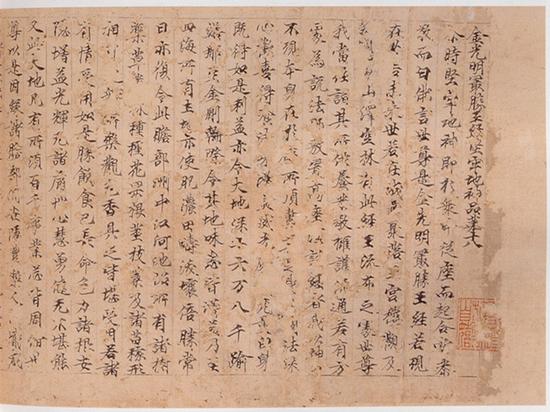 金光明最勝王經堅牢地神品第十八
尒時堅牢地神即於衆中從座而起合掌恭
敬而白佛言世尊是金光明最勝王經若現
在世若未來世若在城邑聚落王宮樓觀及
山澤空林有此經王流布之處世尊
我當往詣其所供養恭敬擁護流通若有方
處為說法師敷置高座演說經者我以神力
不現本身在於座所頂戴其足我得聞法深
心歡喜得飡法味增益威光慶 自身
既得如是利益亦令大地深十六万八千踰
繕那至金剛輪際令其地味悉皆增益乃至
四海所有土地亦使肥濃田疇沃壤倍勝常
日亦復令此贍部洲中江河池沼所有諸樹
藥草 林種種花果根莖枝葉及諸苗稼形
相可 所樂觀色香具足皆堪受用若諸
有情受用如是勝飲食已長命色力諸根安
隱增益光輝无諸痛惱心慧勇健无不堪能
又此大地凡有所須百千事業悉皆周備世
尊以是因緣諸贍部洲安隱豐樂人 熾盛